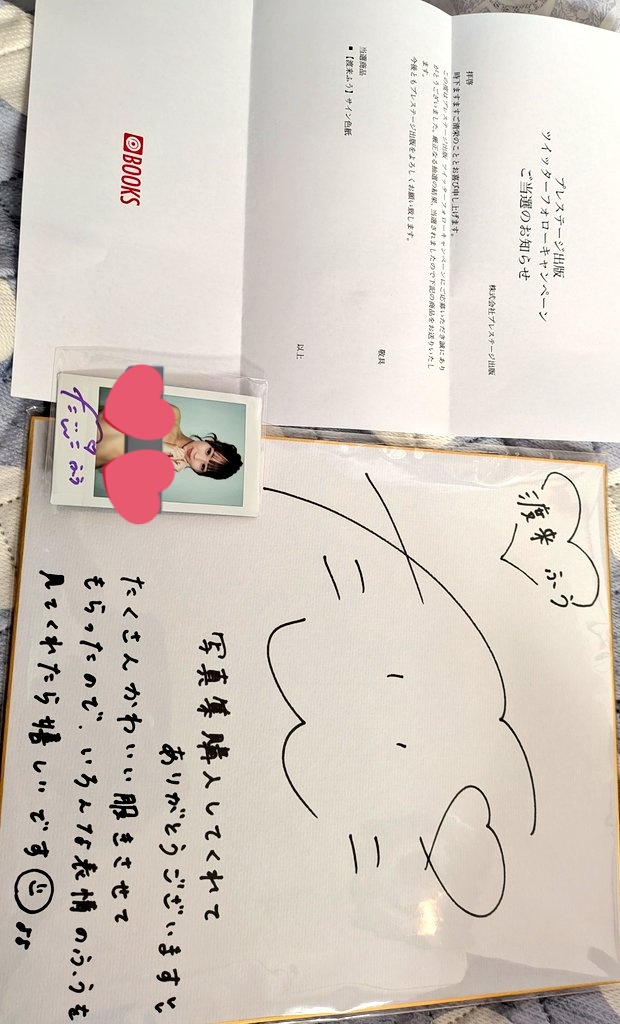 プレステージ出版
ツイッターフォローキャンペーン
ご当選のお知らせ
株式会社プレステージ出版
拝啓
時下ますますご清栄のこととお喜び申し上げます。
この度はプレステージ出版 ツイッターフォローキャンペーンにご応募いただき誠にあり
がとうございました。厳正なる抽選の結果、当選されましたので下記の商品をお送りいたし
ます。
今後ともプレステージ出版をよろしくお願い致します。
敬具
当選商品
■【渡来ふう】サイン色紙
以上
BOOKS
渡来
ふう
写真集購入してくれて
ありがとうございます
たくさんかわいい服きさせて
もらったので、いろんな表情のふうを
見てくれたら嬉しいです